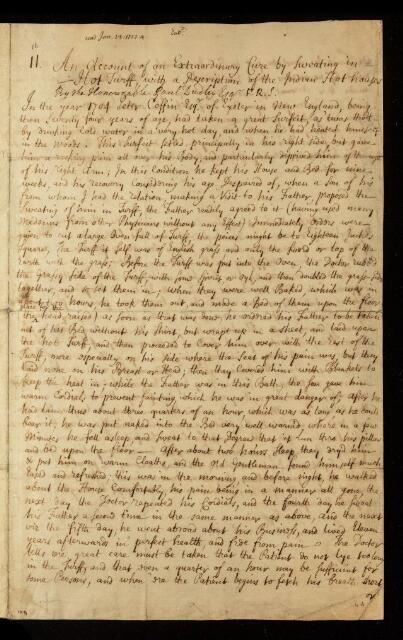 read Jan. 28. 1723-4
11. An Account of an Extraordinary Cure by Sweating in
Hot Turff, with a Description of the Indian Hot Houses
By the Honourable Paul Dudley Esqr F.R.S.
In the year 1704 Peter Coffin Esqr of Exeter in New England, being
then Seventy four years of age, had taken a great Surfeit, as twas thot
by drinking Cold water in a very hot day, and when he had heated himself
in the woods. This Surfeit settled principally in his right Side, but gave
him a racking pain all over his Body, and particularly deprived him of the use
of his Right Arm; In this Condition he kept his House and Bed for some
weeks, and his recovery considering his age Despaired of, when a Son of his
from whom I had the relation, making a Visit to his Father, proposed the
Sweating of him in Turff, the Father readily agreed to it having used many
Medicines from other Physicians without any Effect. Immediately Orders were
given to Cut a large Oven full of Turff, the peices might be to Eighteen Inches
Square, The Turff it self was of English Grass and only the Sword or top of the
Earth with the grass; Before the Turff was put into the Oven, the Doctor rubb'd
the grassy side of the Turff with some Spirits or Oyl, and then doubled the grassy sides
together, and so let them in; When they were well Baked which was in
about two hours, he took them out, and made a Bed of them upon the floor
as soon as that was done, he ordered his Father to be taken
out of his Bed without his Shirt, but wrapt up in a Sheet, and laid upon
the hot Turff, and then proceeded to Cover him over with the rest of the
Turff, more especially on his side where the Seat of his pain was, but they
laid none on his Breast or Head; then they Covered him with Blankets to
keep the heat in; while the Father was in this Bath, the Son gave him
warm Cordials to prevent fainting which he was in great danger of; after he
had lain thus about three quarters of an hour, which was as long as he could
bear it, he was put naked into the Bed very well warmed, where in a few
Minutes he fell asleep, and Sweat to that Degree that it run thro his pillow
and bed upon the floor. After about two hours Sleep they dry'd him
& put him on warm Cloaths, and the old Gentleman found himself much
eased and refreshed; this was in the morning, and before night, he walked
about the House Comfortably, his pain being in a manner all gone; the
next day the Doctor repeated his Cordials, and the fourth day he Sweat
his Father a second time in the same manner as above, and the next
viz the fifth Day, he went abroad about his Business, and lived Eleven
years afterwards in perfect health, and free from pain. The Doctor
tells me, great care must be taken that the Patient do not lye too long
in the Turff, and that even a quarter of an hour may be Sufficient for
some Persons, and when ere the Patient begins to fetch his breath short
or